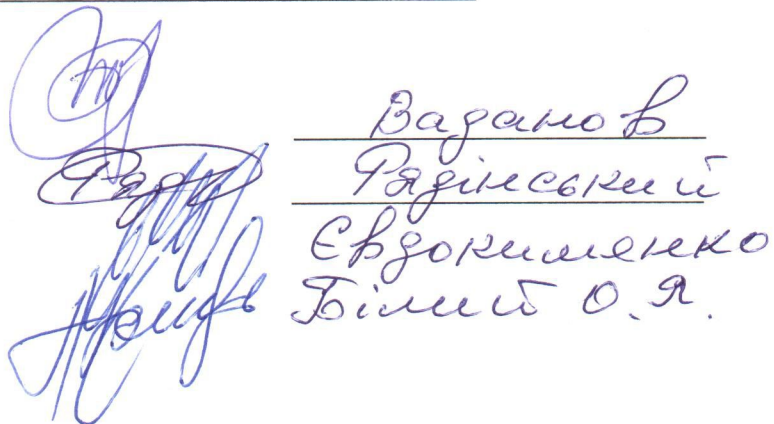 Ваданов
Рядінський
Євдокименко
Білий О.Я.